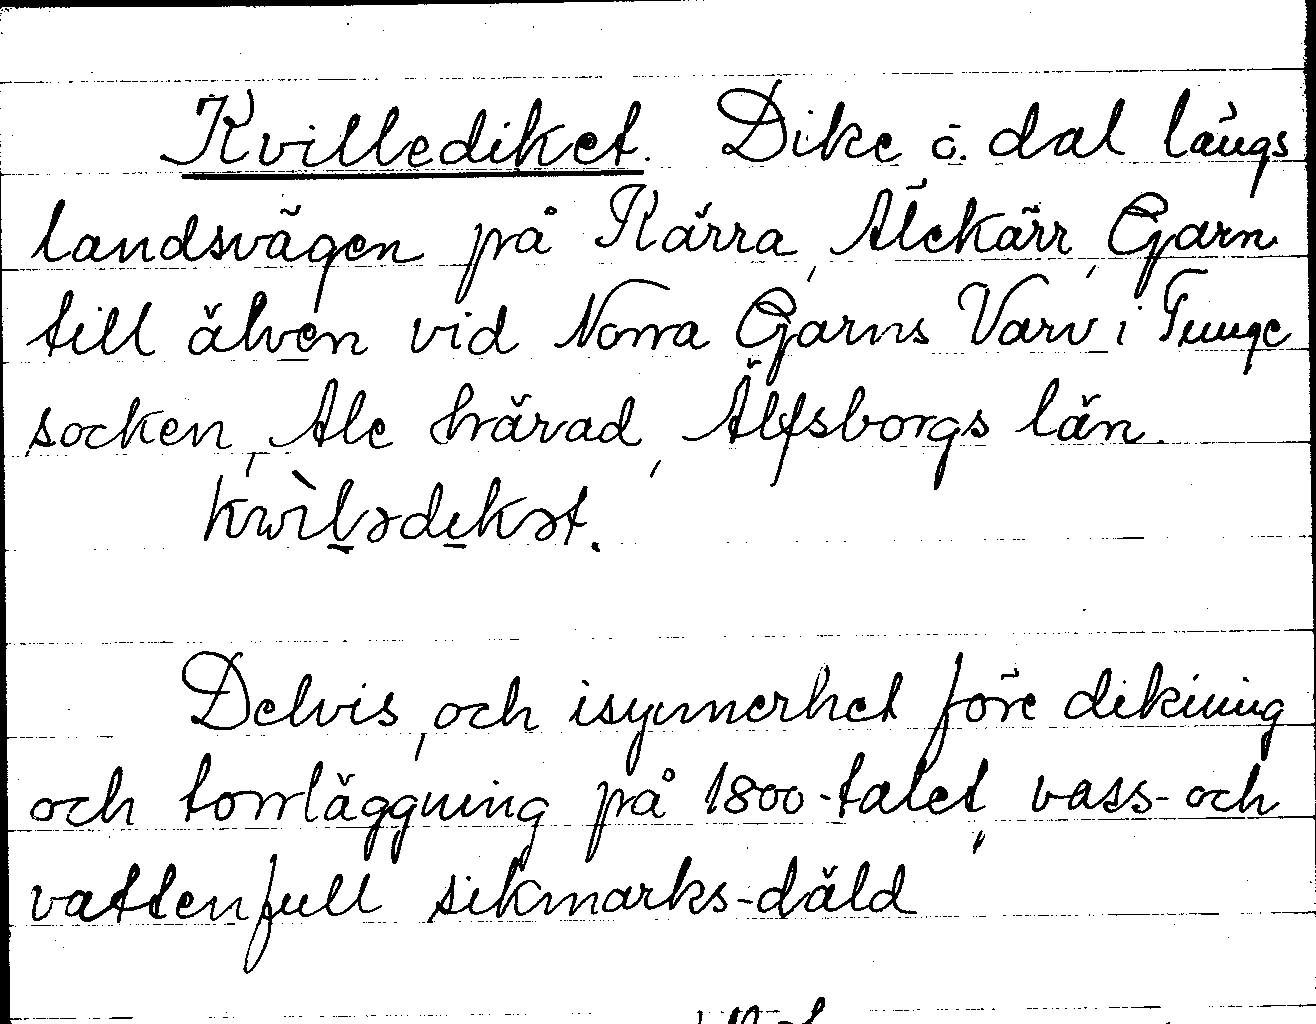 Kvillediket. Dike o. dal längs
landsvägen på Kärra, Alekärr, Garn
till älven vid Norra Garns Varv i Tunge
socken, Ale härad, Älfsborgs län.
kwìlədikət.
Delvis, och isynnerhet före dikning
och torrläggning på 1800-talet, vass- och
vattenfull sikmarks-däld